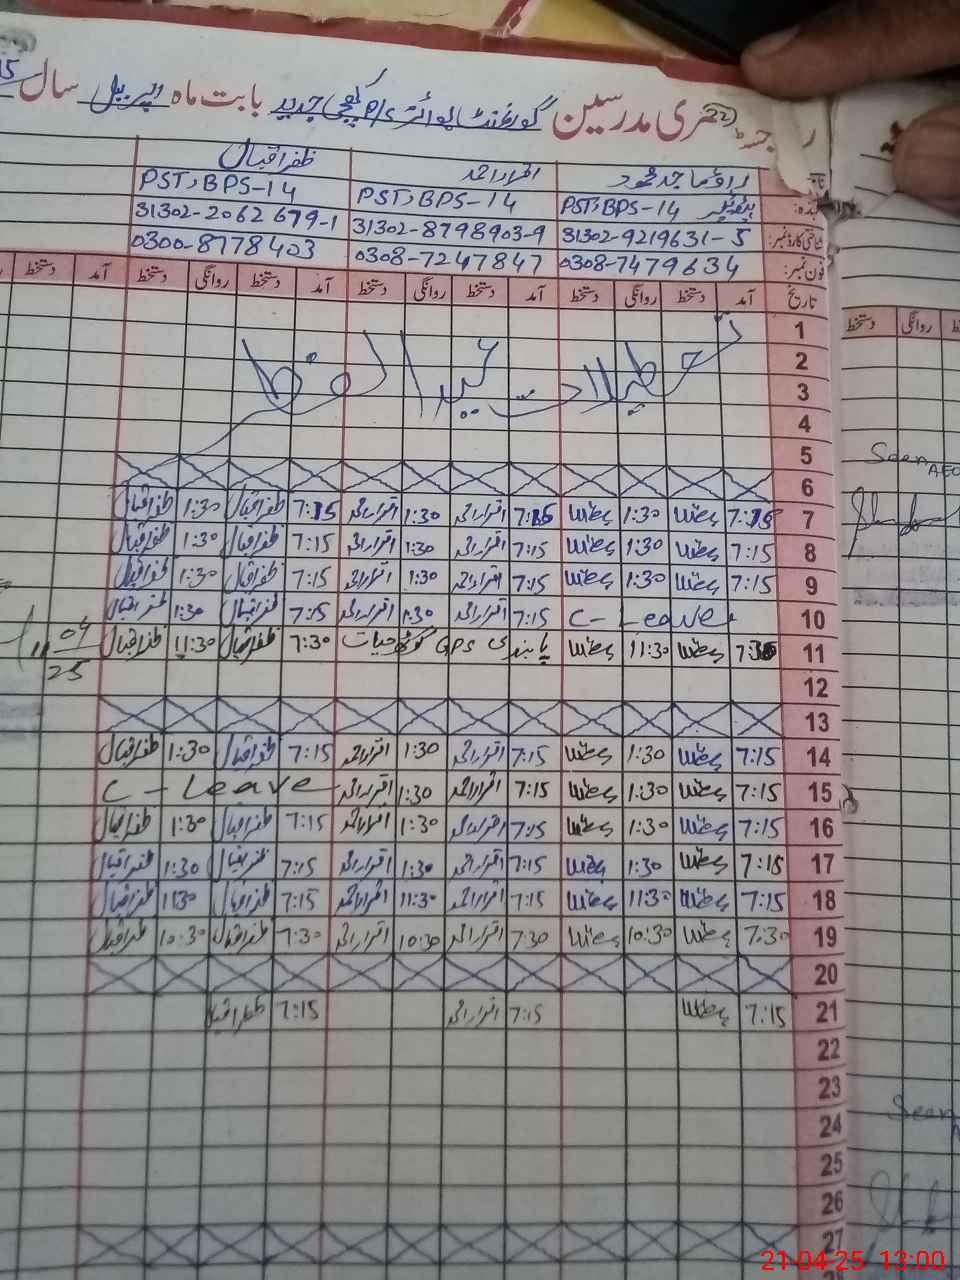 رجسٹر حاضری مدرسین گورنمنٹ بوائز P/S کچی جدید بابت ماہ اپریل سال
راؤ ماجد محمود اقرار احمد ظفر اقبال
عہدہ: PST, BPS-14 PST, BPS-14 PST, BPS-14
شناختی کارڈ نمبر: 31302-9219631-5 31302-8798903-9 31302-2062679-1
فون نمبر: 0308-7479634 0308-7247847 0300-8778403
تاریخ آمد دستخط روانگی دستخط آمد دستخط روانگی دستخط آمد دستخط روانگی دستخط آمد دستخط
1
2 تعطیلات عید الفطر
3
4
5
6
7 7:15 1:30 7:15 اقرار احمد 1:30 اقرار احمد 7:15 ظفر اقبال 1:30 ظفر اقبال
8 7:15 1:30 7:15 اقرار احمد 1:30 اقرار احمد 7:15 ظفر اقبال 1:30 ظفر اقبال
9 7:15 1:30 7:15 اقرار احمد 1:30 اقرار احمد 7:15 ظفر اقبال 1:30 ظفر اقبال
10 C-Leave 7:15 اقرار احمد 1:30 اقرار احمد 7:15 ظفر اقبال 1:30 ظفر اقبال
11 11:30 GPS گوٹھ حیات 7:30 ظفر اقبال 11:30 ظفر اقبال
12
13
14 7:15 1:30 7:15 اقرار احمد 1:30 اقرار احمد 7:15 ظفر اقبال 1:30 ظفر اقبال
15 7:15 1:30 7:15 اقرار احمد 1:30 اقرار احمد C-Leave
16 7:15 1:30 7:15 اقرار احمد 1:30 اقرار احمد 7:15 ظفر اقبال 1:30 ظفر اقبال
17 7:15 1:30 7:15 اقرار احمد 1:30 اقرار احمد 7:15 ظفر اقبال 1:30 ظفر اقبال
18 7:15 11:30 7:15 اقرار احمد 11:30 اقرار احمد 7:15 ظفر اقبال 1130 ظفر اقبال
19 7:30 10:30 7:30 اقرار احمد 10:30 اقرار احمد 7:30 ظفر اقبال 10:30 ظفر اقبال
20
21 7:15 7:15 اقرار احمد 7:15 ظفر اقبال
22
23
24
25
26
27
روانگی دستخط
Seen
AEO
Seen
11/04/25
21-04-25 13:00